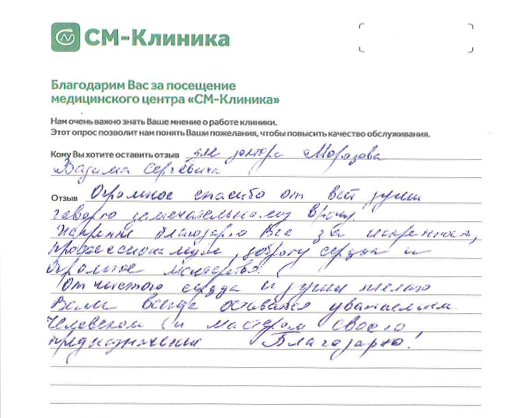 СМ-Клиника
Благодарим Вас за посещение
медицинского центра «СМ-Клиника»
Нам очень важно знать Ваше мнение о работе клиники.
Этот опрос позволит нам понять Ваши пожелания, чтобы повысить качество обслуживания.
Кому Вы хотите оставить отзыв для доктора Морозова
Вадима Сергеевича
Отзыв Огромное спасибо от всей души
говорю замечательному врачу.
Искренне благодарю Вас за искренность,
профессионализм, доброту сердца и
огромное мастерство.
От чистого сердца и души желаю
Вам всегда оставаться уважаемым
Человеком и мастером своего
предназначения Благодарю!